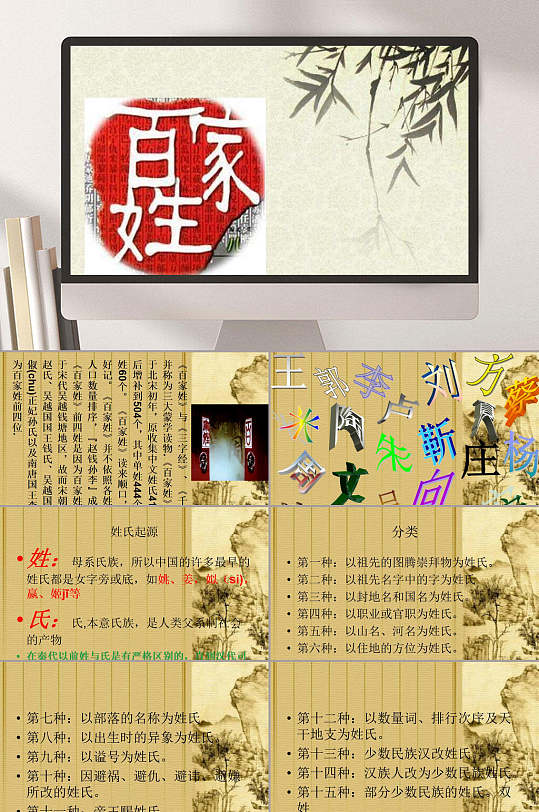 百家姓
《百家姓》与《三字经》、《千
并称为三大蒙学读物，《百家姓》
于北宋初年，原收集中文姓氏41
后增补到504个，其中单姓444个
姓60个。《百家姓》读来顺口，
好记。《百家姓》并不依照各姓
人口数量排序，『赵钱孙李』成
《百家姓》前四姓是因为百家姓
于宋代吴越钱塘地区，故而宋朝
赵氏、吴越国国王钱氏、吴越国
俶(chù)正妃孙氏以及南唐国王李
为百家姓前四位.
王 郭 李 卢 刘 方
米 陶 朱 靳 庄 杨
周 文 向
姓氏起源
• 姓：母系氏族，所以中国的许多最早的
姓氏都是女字旁或底，如姚、姜、姒（sì)，
嬴、姬jī等
• 氏：氏,本意氏族，是人类父系制社会
的产物
• 在秦代以前姓与氏是有严格区别的，
分类
• 第一种：以祖先的图腾崇拜物为姓氏。
• 第二种：以祖先名字中的字为姓氏
• 第三种：以封地名和国名为姓氏。
• 第四种：以职业或官职为姓氏。
• 第五种：以山名、河名为姓氏。
• 第六种：以住地的方位为姓氏。
• 第七种：以部落的名称为姓氏。
• 第八种：以出生时的异象为姓氏。
• 第九种：以谥号为姓氏。
• 第十种：因避祸、避仇、避讳、避嫌
所改的姓氏。
• 第十一种：帝王赐姓氏。
• 第十二种：以数量词、排行次序及天
干地支为姓氏。
• 第十三种：少数民族汉改姓氏。
• 第十四种：汉族人改为少数民族姓氏。
• 第十五种：部分少数民族的姓氏、双
姓